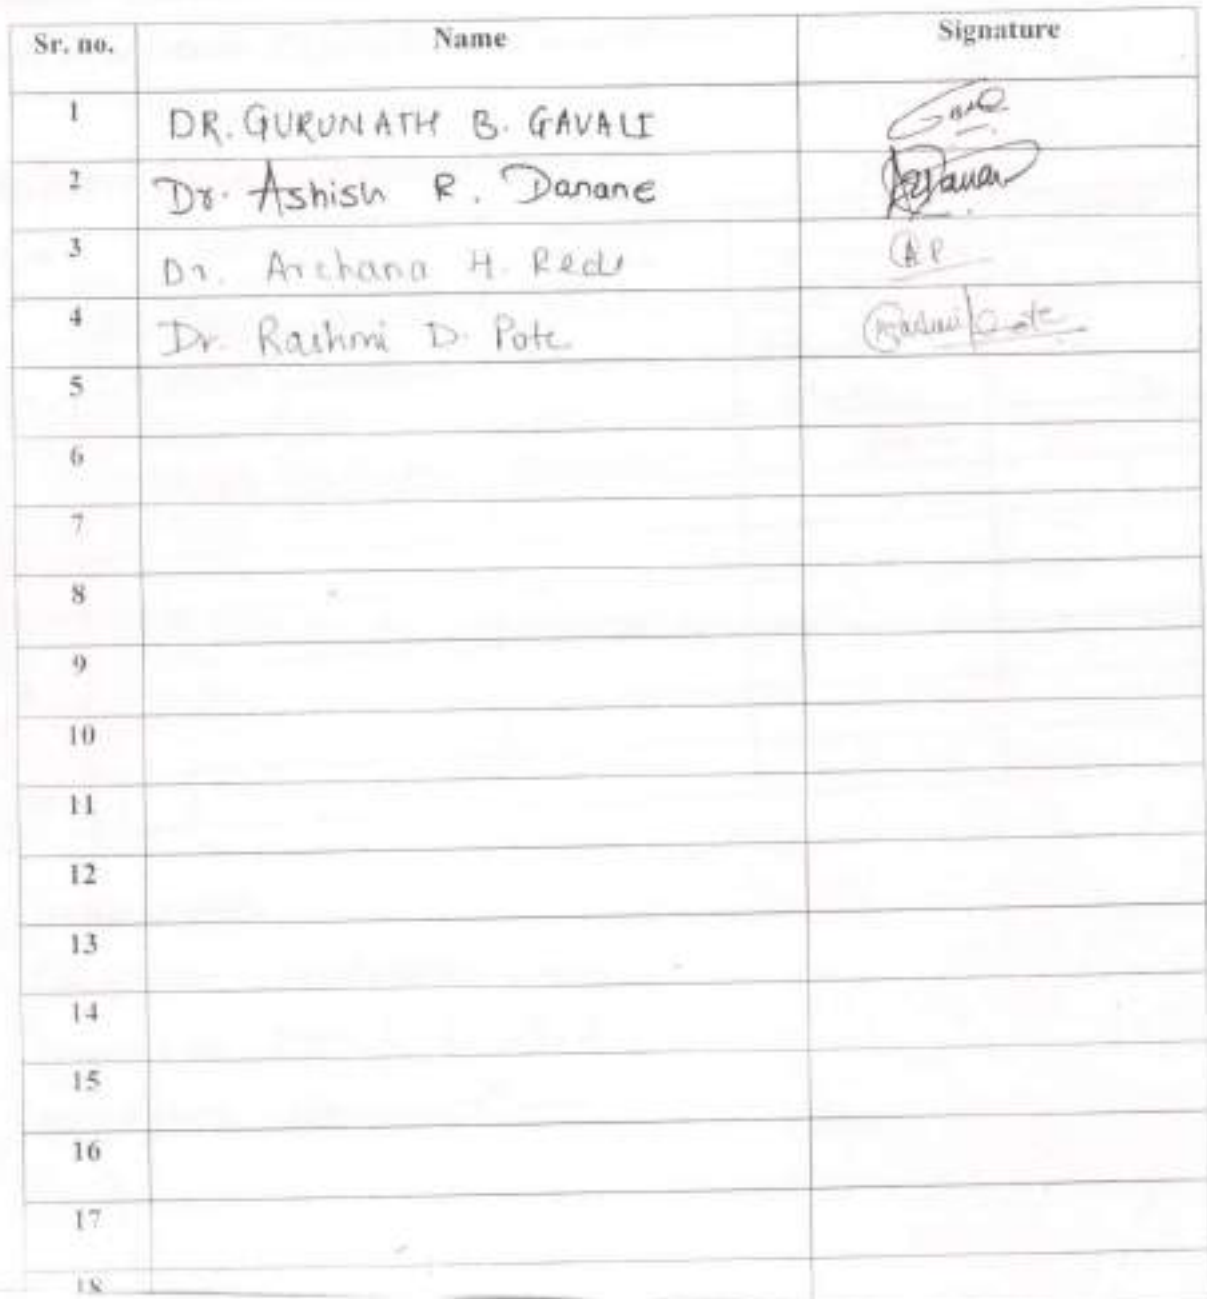 Sr. no. Name Signature
1 DR. GURUNATH B. GAVALI
2 Dr. Ashish R. Danane
3 Dr. Archana H. Redi AP
4 Dr. Rashmi D. Pote Rashmi Pote
5
6
7
8
9
10
11
12
13
14
15
16
17
18